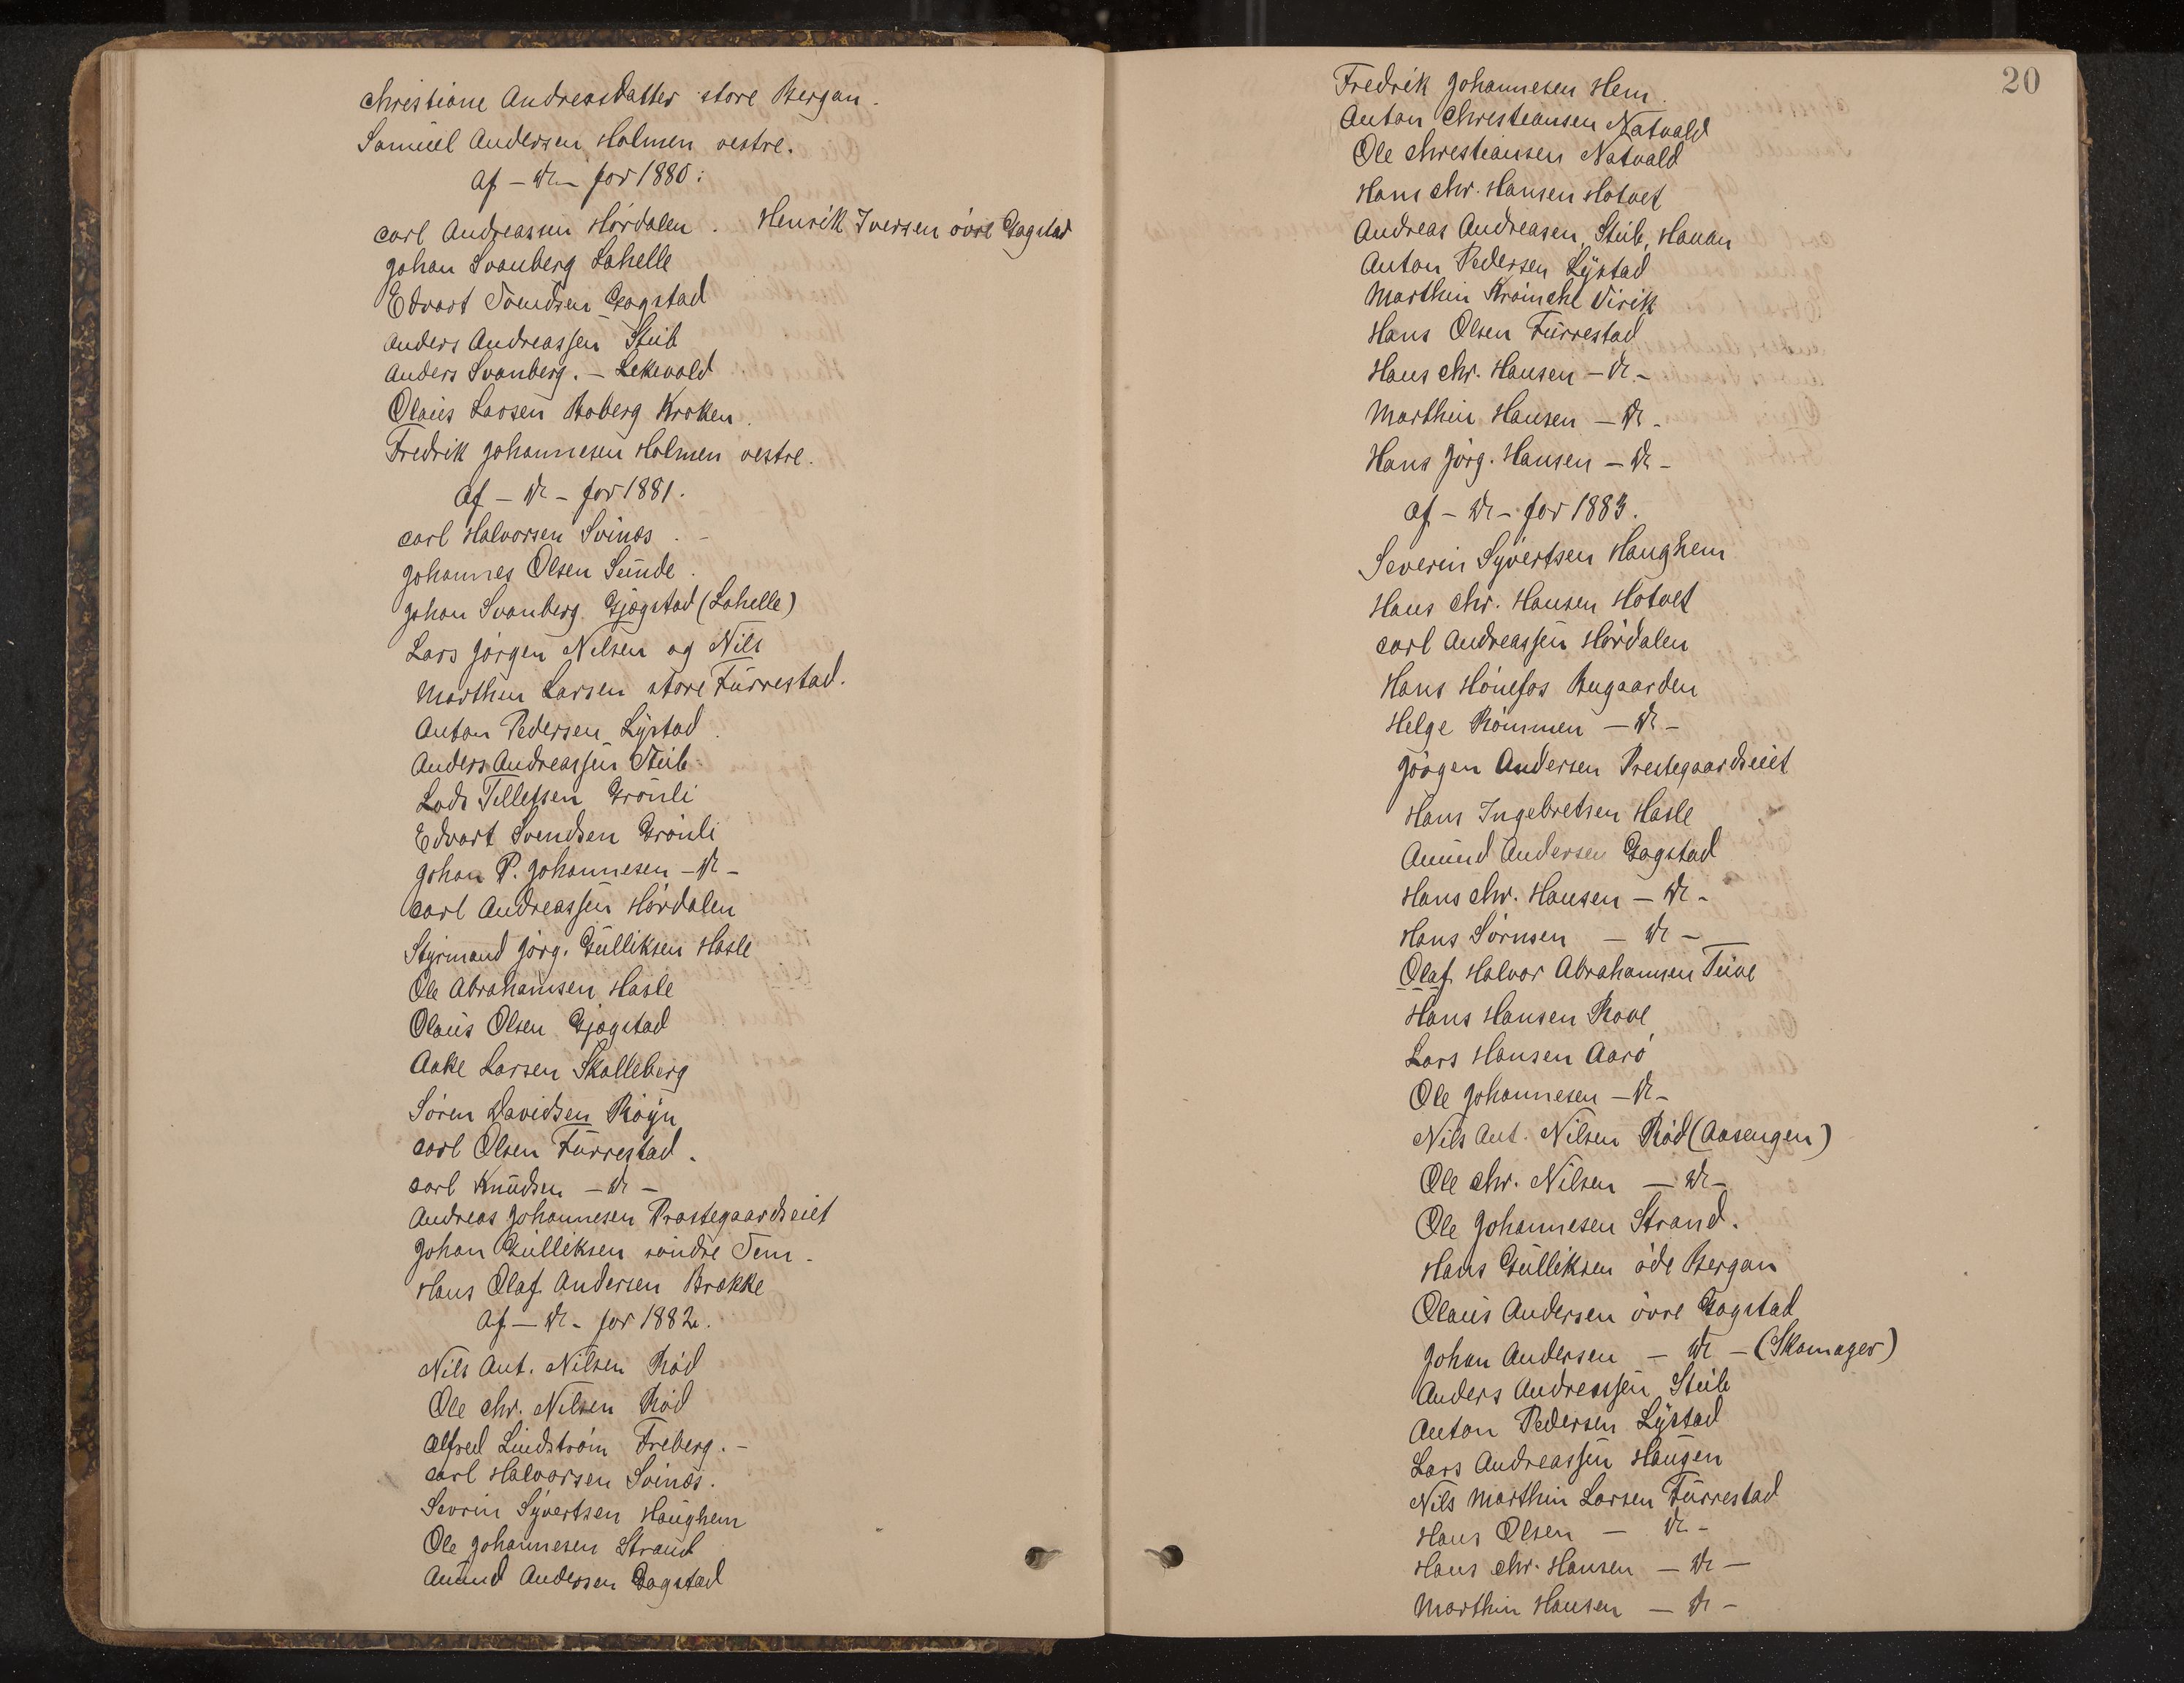 Christiane Andreasdatter store Bergan.
Samuel Andersen Holmen vestre.
Af – Do – for 1880:
Carl Andreassen Hördalen. Henrik Iversen övre Gogstad
Johan Svanberg Lahelle
Edvart Svendsen Gogstad
Anders Andreassen Stub
Anders Svanberg. – Lekevold
Olaus Larsen Boberg Kroken.
Fredrik Johannesen Holmen vestre.
Af – Do – for 1881.
Carl Halvorsen Svines. –
Johannes Olsen Sunde.
Johan Svanberg Gjøgstad (Lahelle)
Lars Jörgen Nilsen og Nils
Marthin Larsen store Furrestad.
Anton Pedersen Lystad.
Anders Andreassen Stub.
Lods Tellefsen Grönli
Edvart Svendsen Grönli
Johan P. Johannesen – Do –
Carl Andreassen Hördalen
Styrmand Jörg. Gulliksen Hasle
Ole Abrahamsen Hasle
Olaus Olsen Gjøgstad
Aake Larsen Skalleberg
Sören Davidsen Röyn
Carl Olsen Furrestad.
Carl Knudsen – Do –
Andreas Johannesen Prestegaardseiet
Johan Gulliksen söndre Tem.
Hans Olaf Andersen Brekke
Af – Do – for 1882.
Nils Ant. Nilsen Röd
Ole Chr. Nilsen Röd
Alfred Lindström Freberg. –
Carl Halvorsen Svines.
Sevrin Syvertsen Haughem
Ole Johannesen Strand
Amund Andersen Gogstad
20
Fredrik Johannesen Hem.
Anton Christiansen Natvald
Ole Christiansen Natvald
Hans Chr. Hansen Hotvet
Andreas Andreasen, Stub, Hauan
Anton Pedersen Lystad
Marthin Virik
Hans Olsen Furrestad
Hans Chr. Hansen – Do –
Marthin Hansen – Do –
Hans Jörg. Hansen – Do –
Af – Do – for 1883.
Severin Syvertsen Haughem
Hans Chr. Hansen Hotvet
Carl Andreassen Hördalen
Hans Hönefos Bugaarden
Helge Römmen – Do –
Jörgen Andersen Prestegaardseiet
Hans Ingebretsen Hasle
Amund Andersen Gogstad
Hans Chr. Hansen – Do –
Hans Sörnsen – Do –
Olaf Halvor Abrahamsen Tuve
Hans Hansen Rove
Lars Hansen Aarö
Ole Johannesen – Do –
Nils Ant. Nilsen Röd (Aasengen)
Ole Chr. Nilsen – Do –
Ole Johannesen Strand.
Hans Gulliksen öde Bergan
Olaus Andersen övre Gogstad
Johan Andersen – Do – (Skomager)
Anders Andreassen Stub
Anton Pedersen Lystad
Lars Andreassen Haugen
Nils Marthin Larsen Furrestad
Hans Olsen – Do –
Hans Chr. Hansen – Do –
Marthin Hansen – Do –